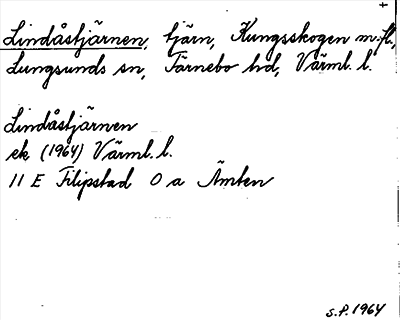 +
Lindåstjärnen, tjärn, Kungsskogen m.fl.,
Lungsunds sn, Färnebo hd, Värml. l.
Lindåstjärnen
ek (1964) Värml. l.
11 E Filipstad 0 a Ämten
S.P. 1964